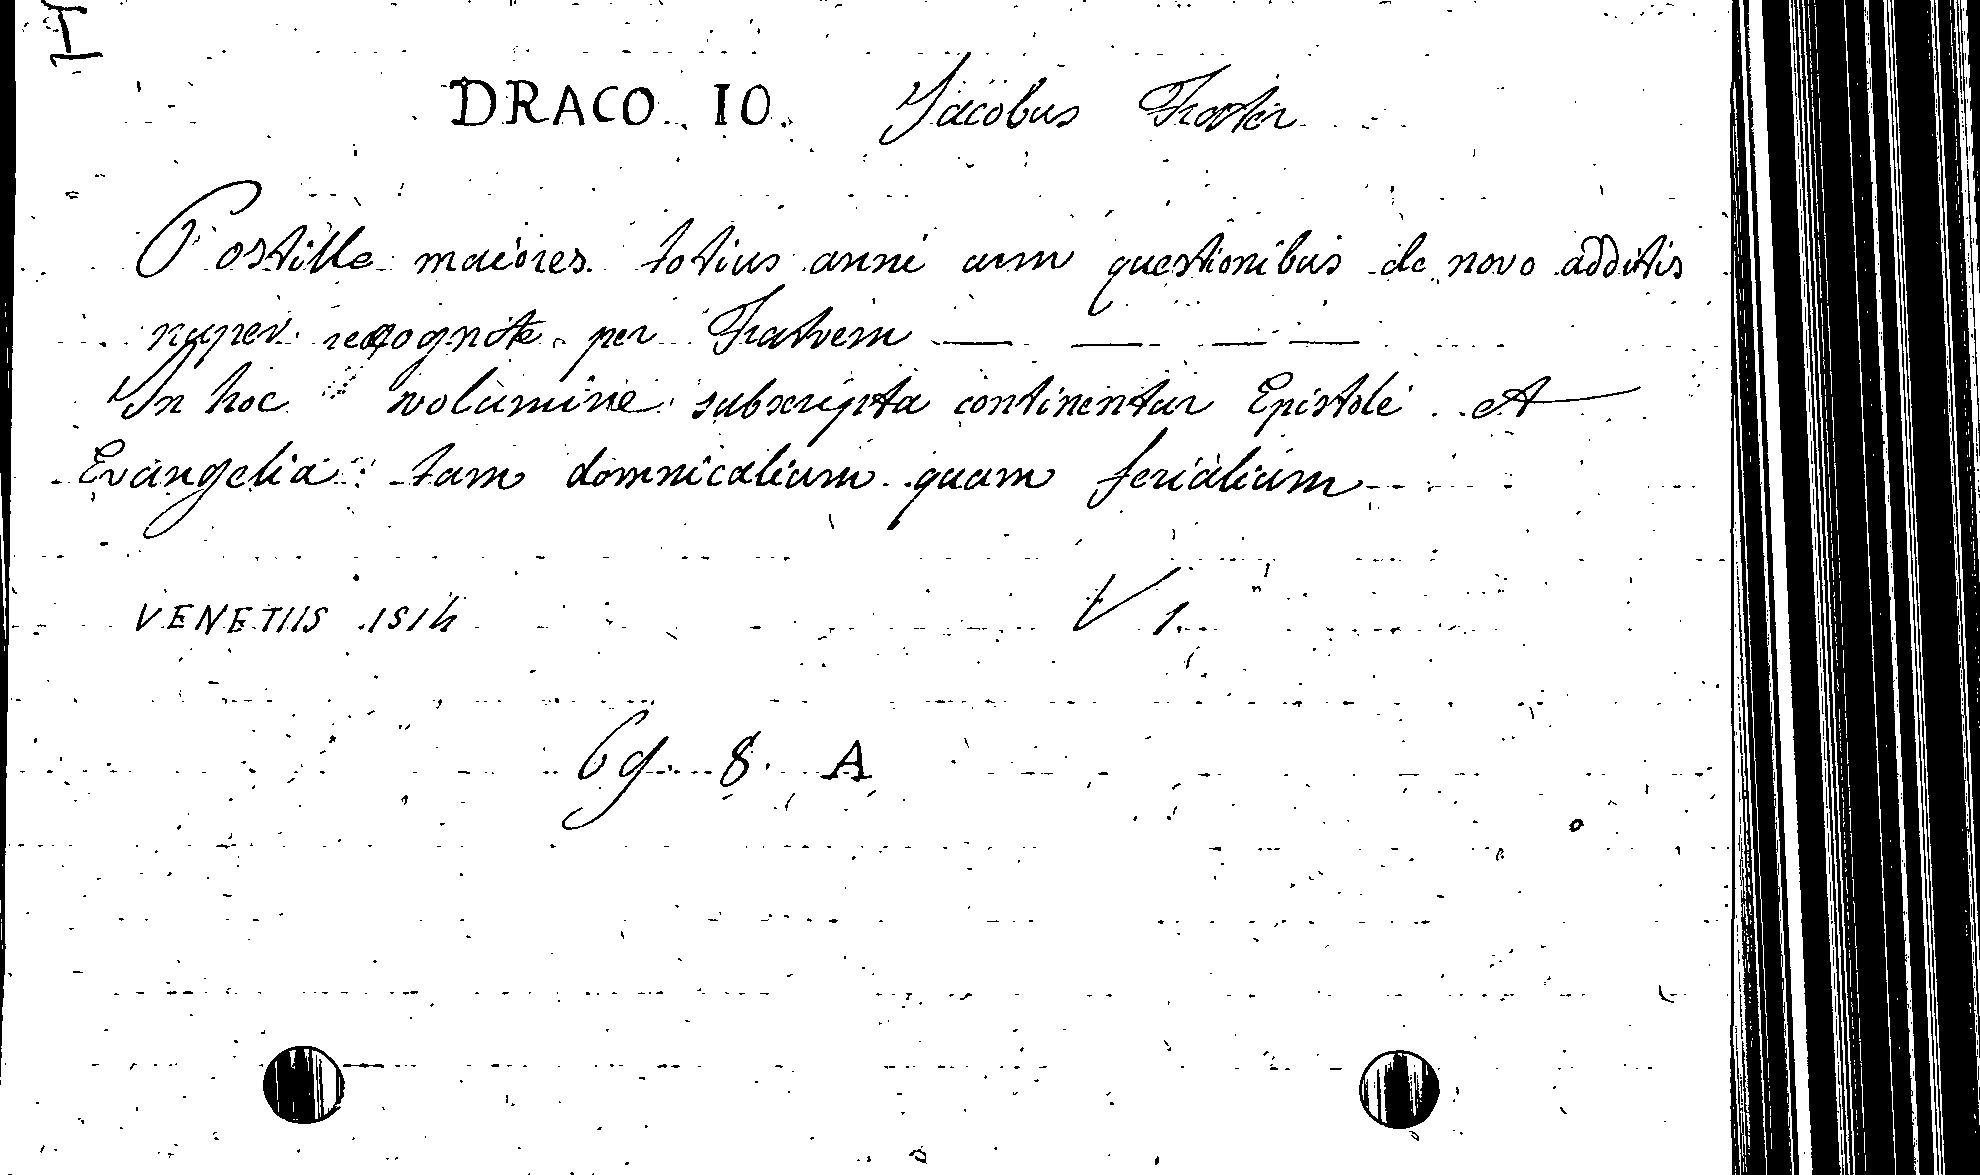 DRACO. IO. Jacobus Frater
Postille maiores totius anni cum questionibus de novo additis
nuper recognite per Fratrem — — — —
In hoc volumine subscripta continentur Epistole et
Evangelia tam domnicalium quam ferialium
VENETIIS 1514
V 1.
69. 8. A